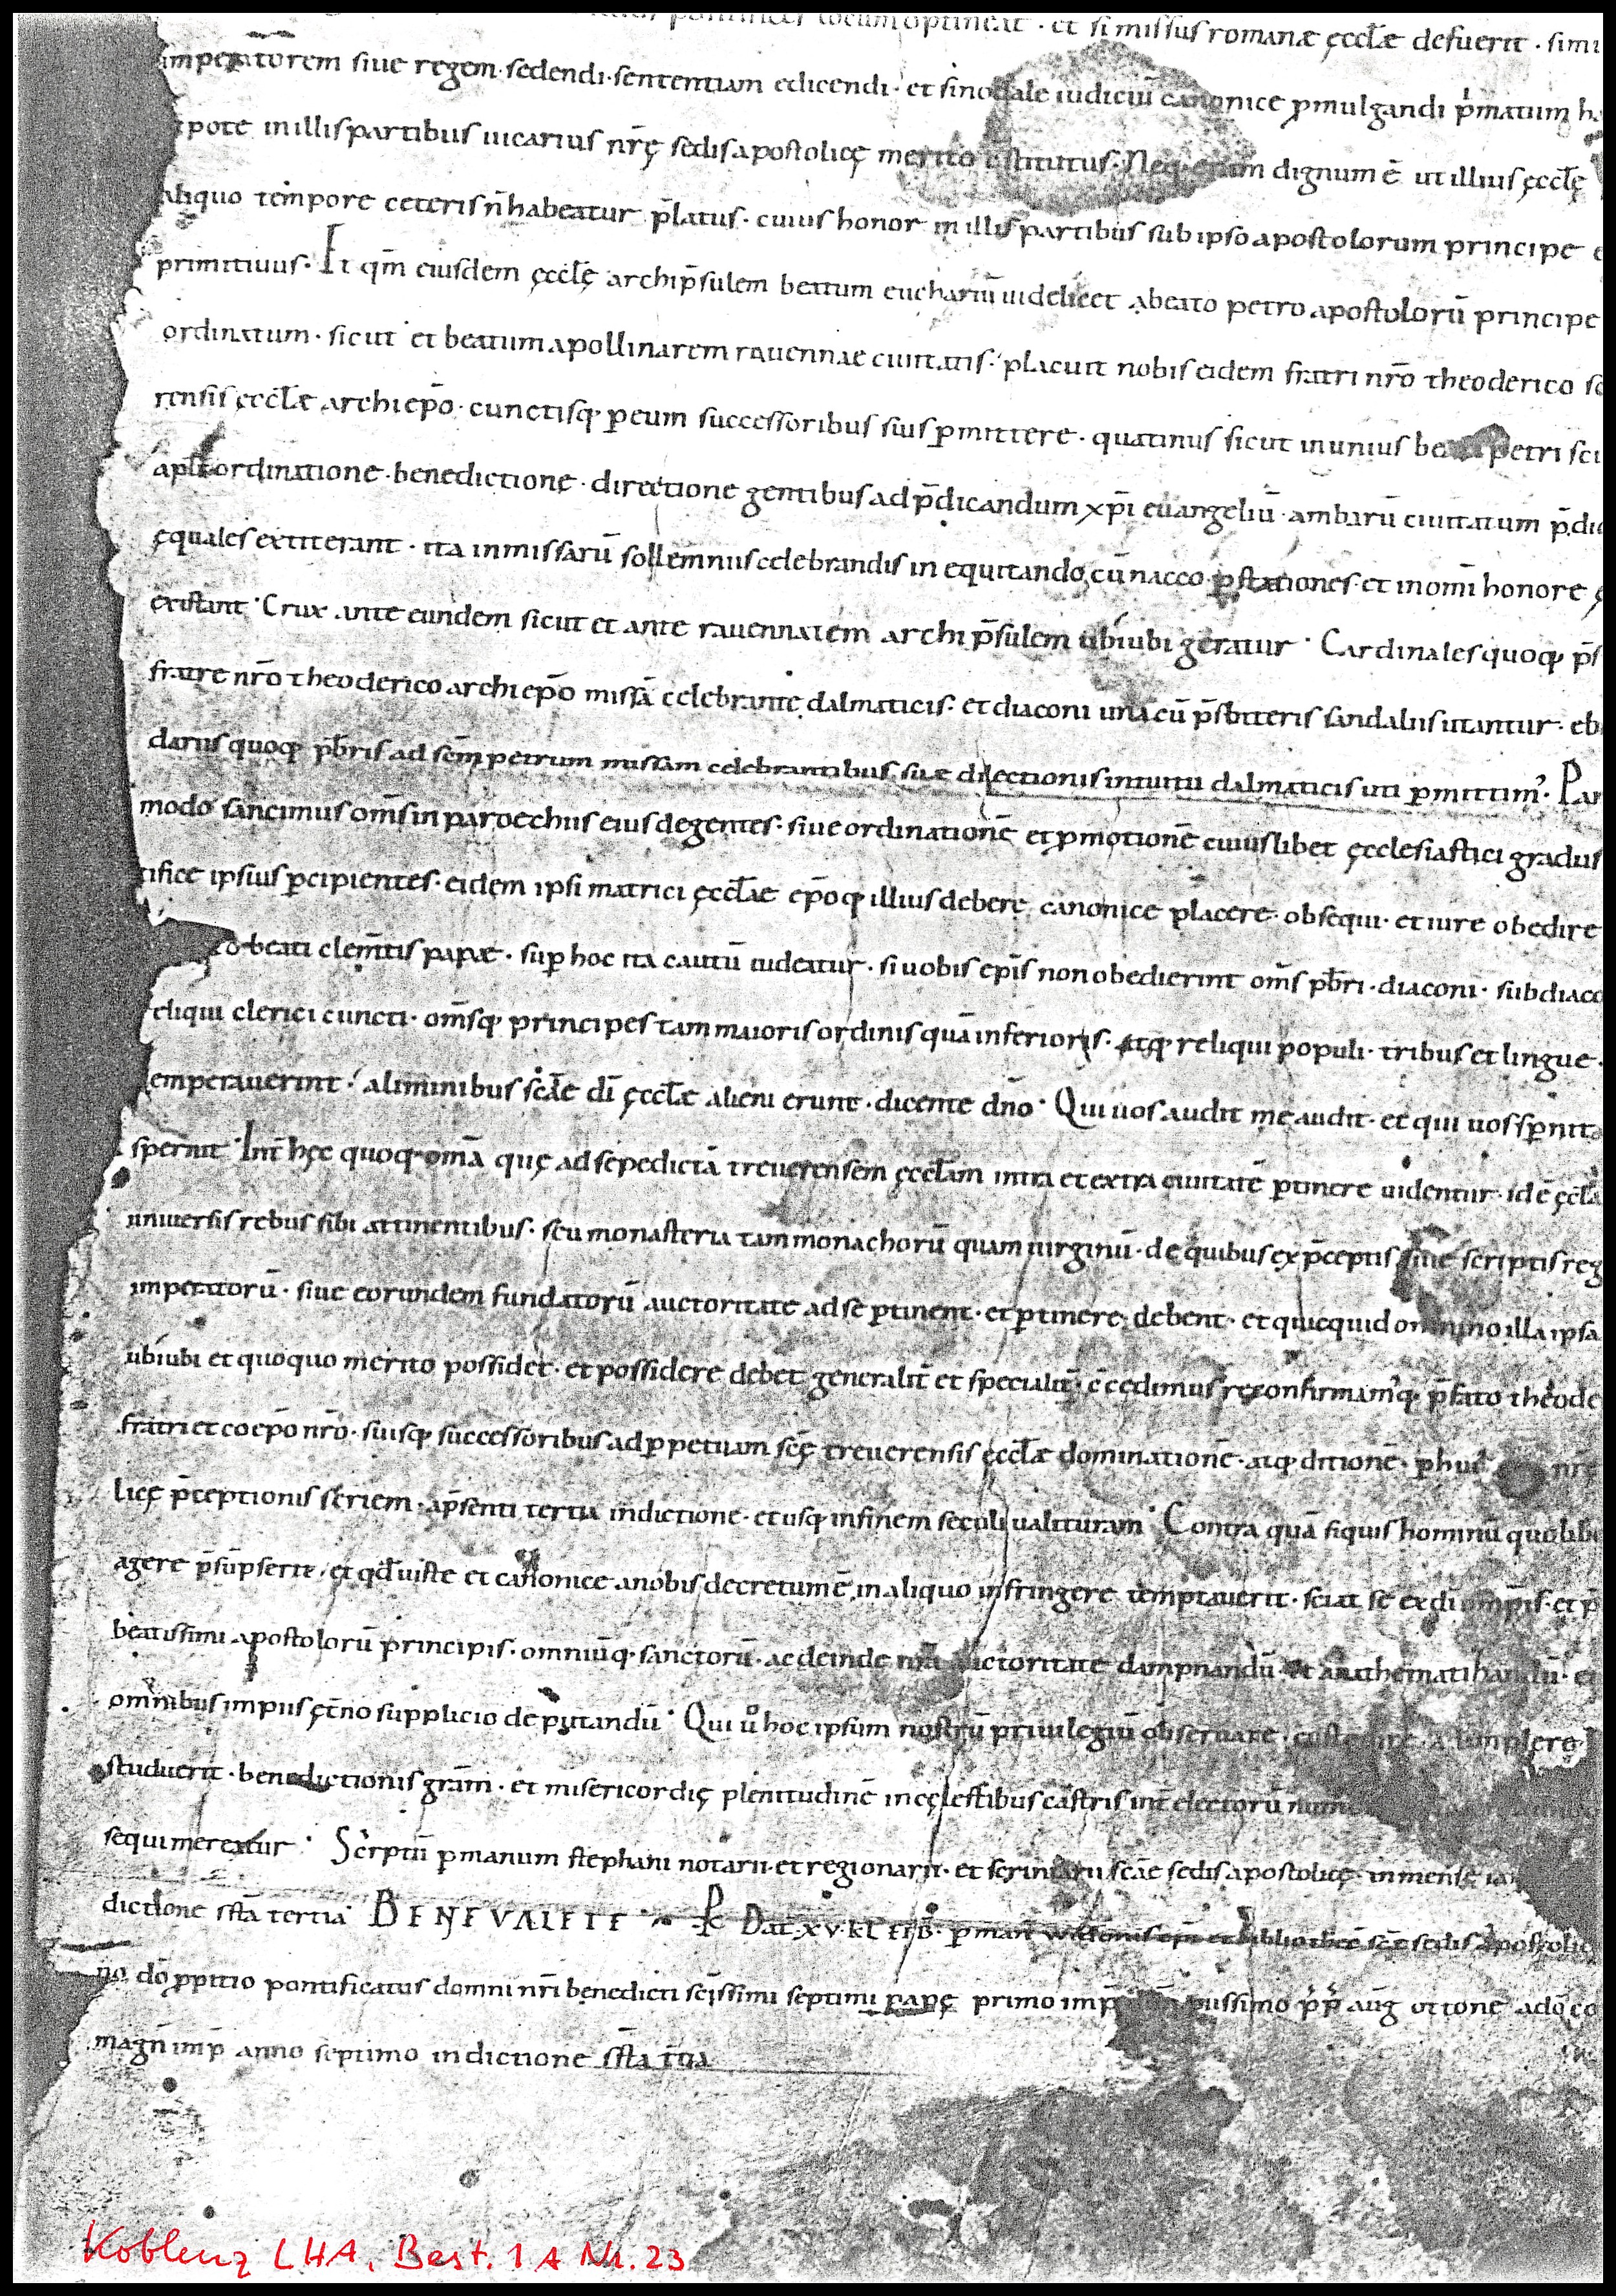 pontifices locum optineat · et si missus romanæ ęccl̄æ defuerit · simi
imperatorem siue regem · sedendi · sententiam edicendi · et sinodale iudiciū canonice pmulgandi p̄matum
pote in illis partibus uicarius nr̄ę sedis apostolicę merito cstitutus · Neq· enim dignum ē ut illius ęccl̄ę
aliquo tempore ceteris n̄ habeatur p̄latus · cuius honor in illis partibus sub ipso apostolorum principe
primitiuus · Et qm̄ eiusdem ęccl̄ę archip̄sulem beatum euchariū uidelicet a beato petro apostolorū principe
ordinatum · sicut et beatum apollinarem rauennae ciuitatis · placuit nobis eidem fratri nr̄o theoderico
rensis ęccl̄æ archiep̄o · cunctisq· p eum successoribus suis pmittere · quatinus sicut in unius beati petri sci
apl̄i ordinatione · benedictione · directione gentibus ad p̄dicandum xp̄i euangeliū · ambarū ciuitatum p̄di
ęquales extiterant · ita in missarū sollemniis celebrandis in equitando cū nacco · p stationes · et in omī honore
existant · Crux ante eundem sicut et ante rauennatem archip̄sulem ubiubi geratur · Cardinales quoq· p̄s
fratre nr̄o theoderico archiep̄o missā celebrante dalmaticis · et diaconi una cū p̄sbiteris sandaliis utantur · eb
dariis quoq· p̄bris ad scm̄ petrum missam celebrantibus suæ dilectionis intuitu dalmaticis uti pmittim' · Pari
modo sancimus om̄s in paroechiis eius degentes · siue ordinationē et pmotionē cuiuslibet ęcclesiastici gradus
tifice ipsius pcipientes · eidem ipsi matrici ęccl̄ae ep̄oq· illius debere canonice placere · obsequi · et iure obedire
o beati clem̄tis papæ · sup hoc ita cautū uideatur · si uobis ep̄is non obedierint om̄s p̄bri · diaconi · subdiaco
eliqui clerici cuncti · om̄sq· principes tam maioris ordinis quā inferioris · atq· reliqui populi · tribus et lingue ·
emperauerint · a liminibus sc̄æ dī ęccl̄æ alieni erunt · dicente dn̄o · Qui uos audit me audit · et qui uos spnit
spernit · Int̄ hęc quoq· omā quę ad sepedictā treuerensem ęccl̄am intra et extra ciuitatē ptinere uidentur · id ē ęccl̄a
uniuersis rebus sibi attinentibus · seu monasteria tam monachorū quam uirginū · de quibus ex p̄ceptis siue scriptis reg
imperatorū · siue eorundem fundatorū auctoritate ad se ptinent · et ptinere debent · et quicquid omnino illa ipsa
ubiubi et quoquo merito possidet · et possidere debet generalit̄ et specialit̄ · c̄cedimus reconfirmam'q· p̄fato theode
fratri et coep̄o nr̄o · suisq· successoribus ad ppetuam sc̄ę treuerensis ęccl̄æ dominationē · atq· ditionē · p hui' nr̄ę
licę p̄ceptionis seriem · a p̄senti tertia indictione · et usq· in finem seculi ualituram · Contra quā si quis hominū quolibe
agere p̄sūpserit · et qd̄ iuste et canonice a nobis decretum ē, in aliquo infringere temptauerit · sciat se ex dī omp̄is · et p̄
beatissimi apostolorū principis · omniūq· sanctorū · ac deinde nr̄a auctoritate dampnandū · et anathematizandū · et
omnibus impiis ęt̄no supplicio deputandū · Qui u͛o hoc ipsum nostrū priuilegiū obseruare · custodire · adimplere
studuerit · benedictionis grām · et misericordię plenitudinē in cęlestibus castris int̄ electorū num
sequi mereatur · Scriptū p manum stephani notarii · et regionarii · et scriniarii sc̄ae sedis apostolicę · in mense ia
dictione ss̄ta tertia · BENEVALETE · Dat̄ · xv · kl̄ feb̄ · p man̄ ep̄i et bibliothec̄ sc̄ę sedis apostolic
no dō ppitio pontificatus domni nr̄i benedicti sc̄issimi septimi papę primo imp̄ piissimo p̄p̄ aug̅ ottone a dō co
magn̄ imp̄ anno septimo indictione ss̄ta t̄tia
Koblenz LHA, Best. 1 A Nr. 23